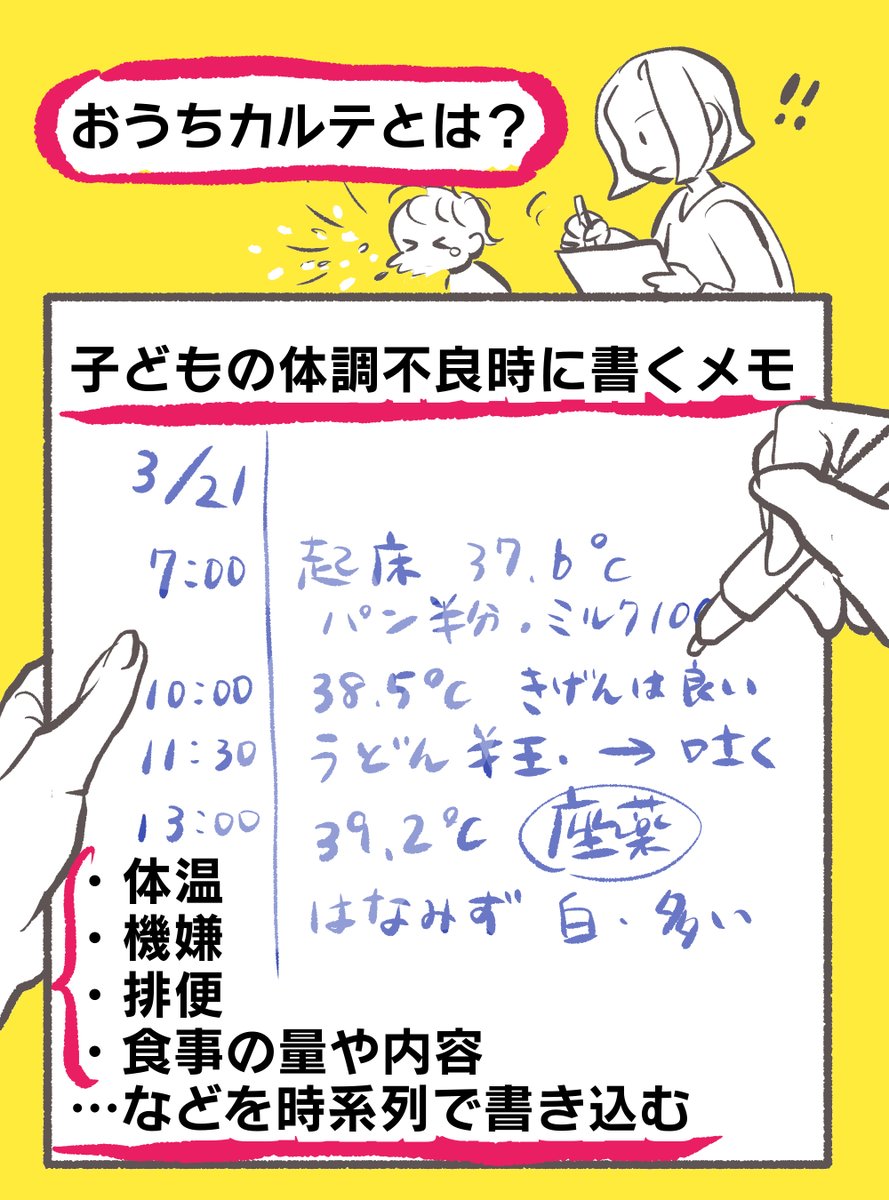 おうちカルテとは?
!!
子どもの体調不良時に書くメモ
3/21
7:00 起床 37.6℃
パン半分・ミルク100
10:00 38.5℃ きげんは良い
11:30 うどん半玉.→吐く
13:00 39.2℃ 座薬
はなみず 白・多い
・体温
・機嫌
・排便
・食事の量や内容
…などを時系列で書き込む